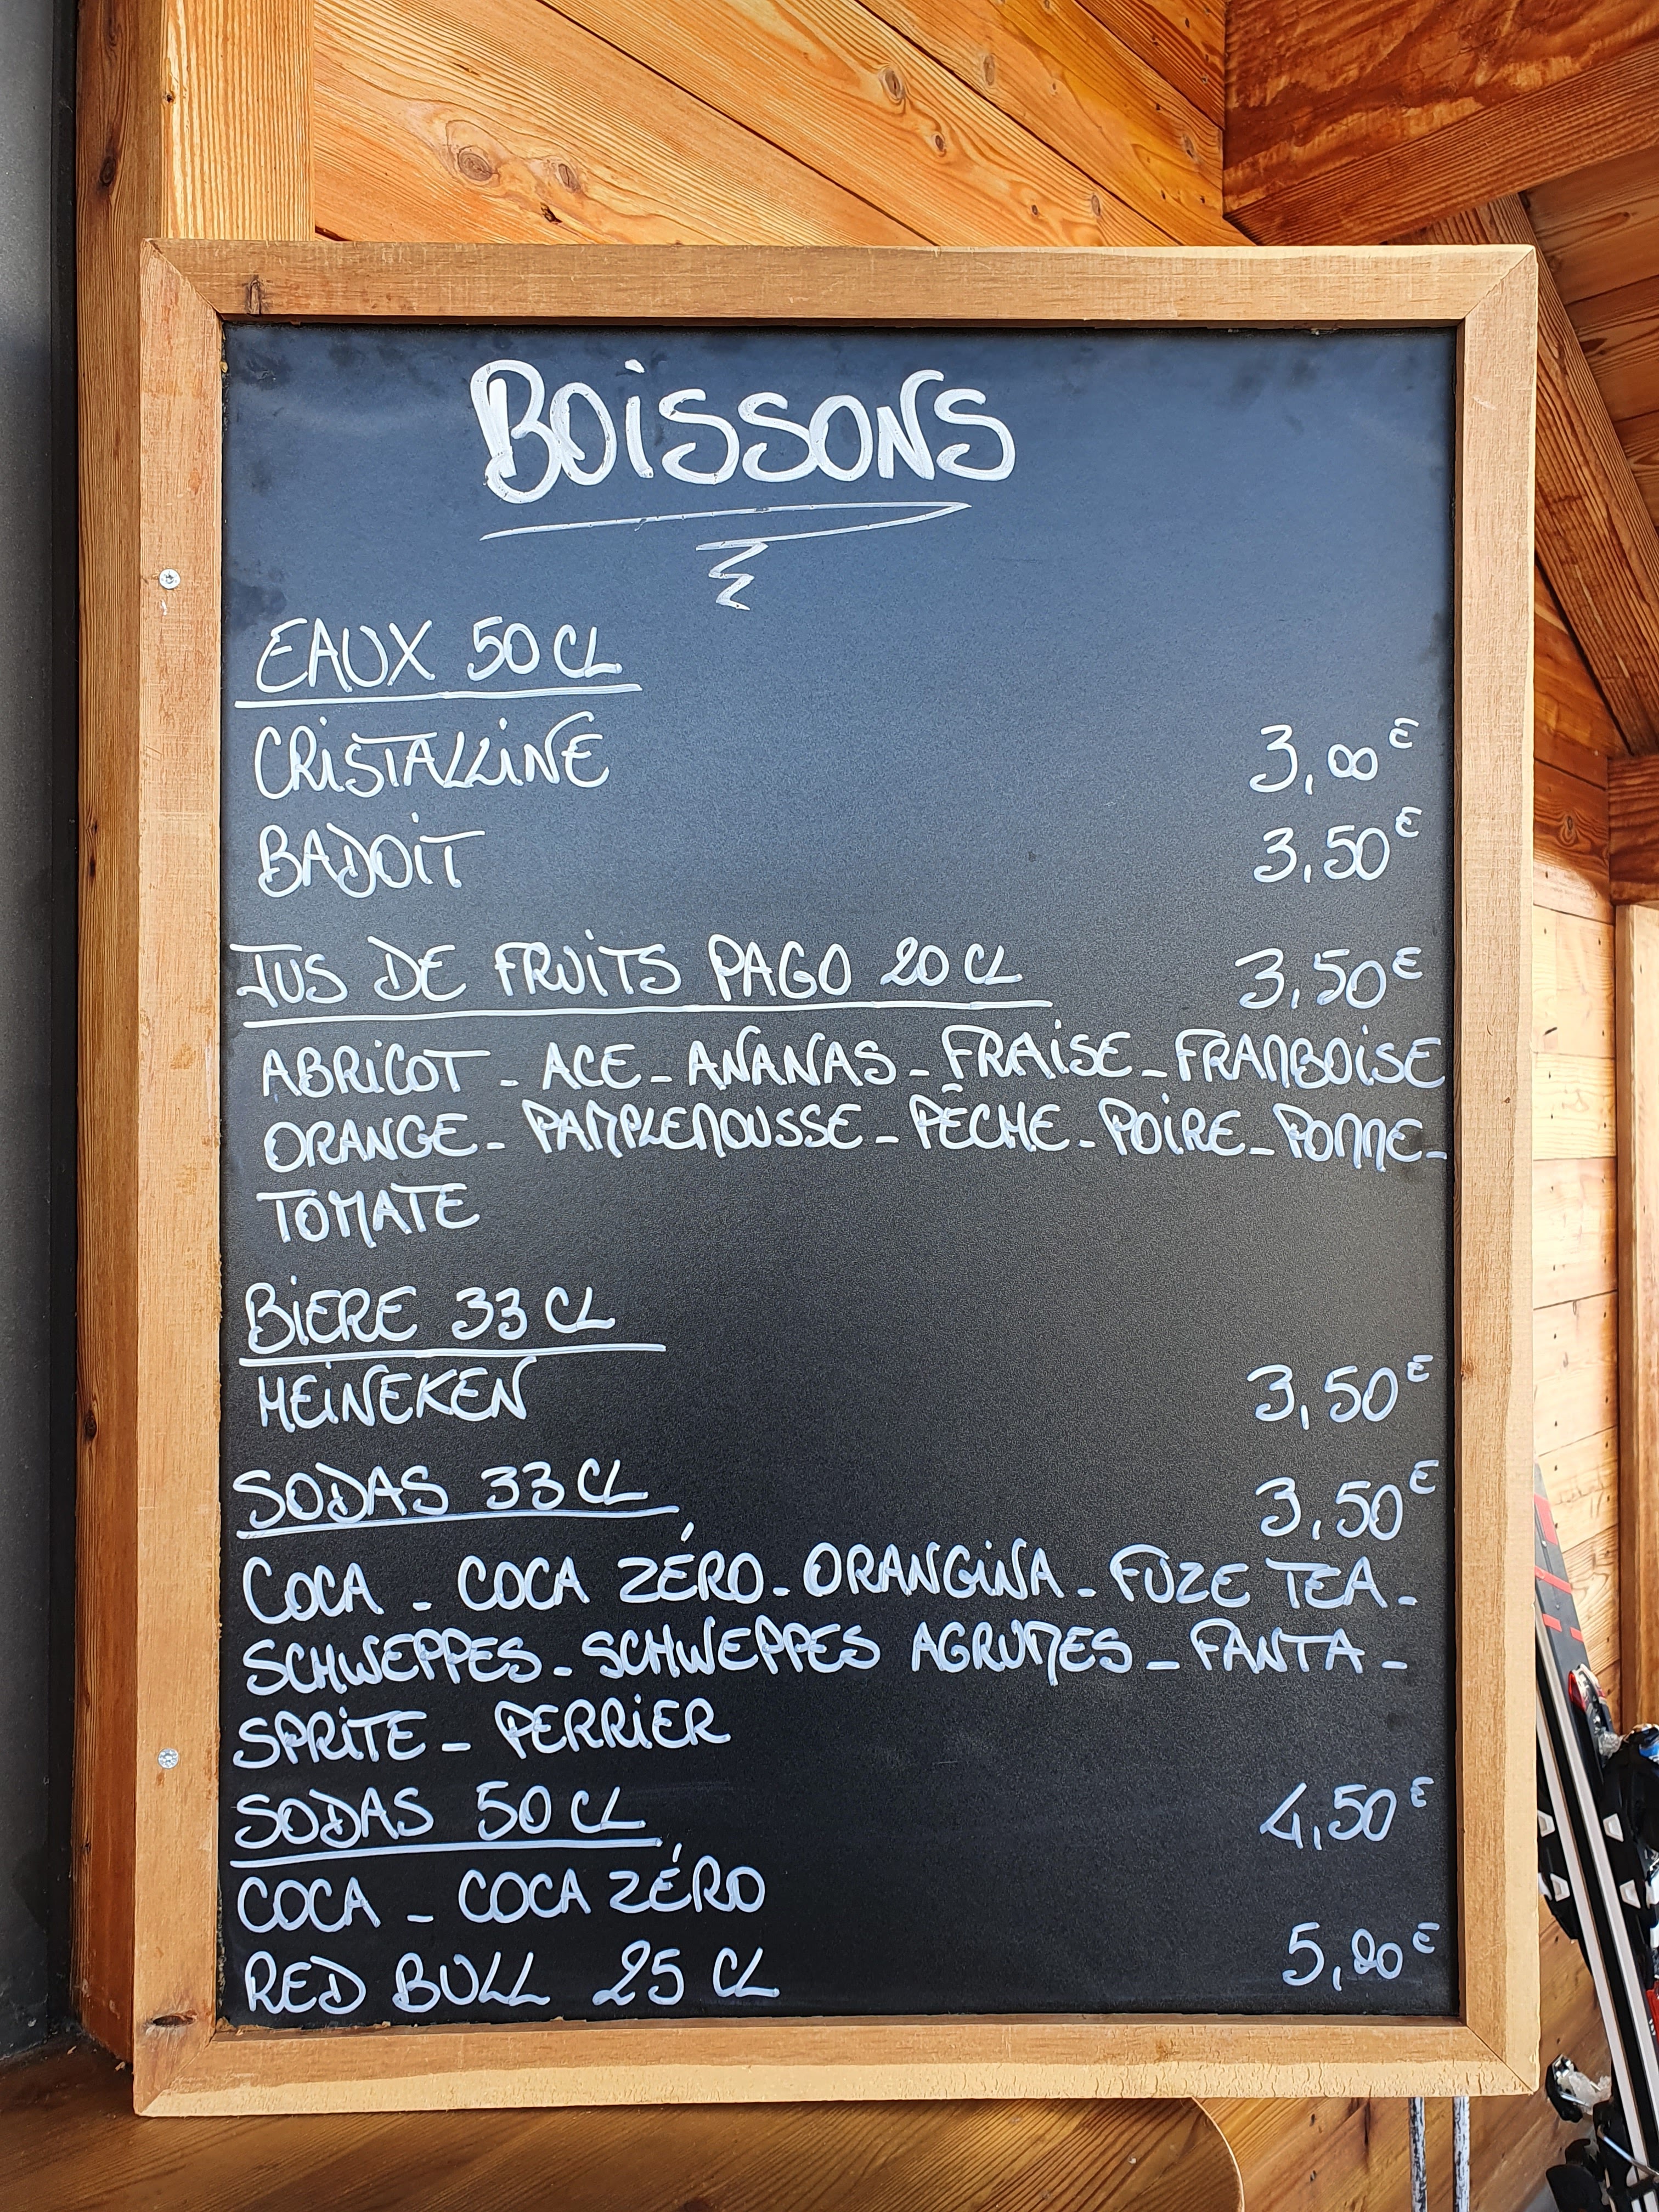 BOISSONS
EAUX 50CL
CRISTALLINE 3,00€
BADOIT 3,50€
JUS DE FRUITS PAGO 20CL 3,50€
ABRICOT - ACE - ANANAS - FRAISE - FRAMBOISE
ORANGE - PAMPLEMOUSSE - PÊCHE - POIRE - POMME -
TOMATE
BIERE 33CL
HEINEKEN 3,50€
SODAS 33CL 3,50€
COCA - COCA ZÉRO - ORANGINA - FUZE TEA -
SCHWEPPES - SCHWEPPES AGRUMES - FANTA -
SPRITE - PERRIER
SODAS 50CL 4,50€
COCA - COCA ZÉRO
RED BULL 25 CL 5,20€